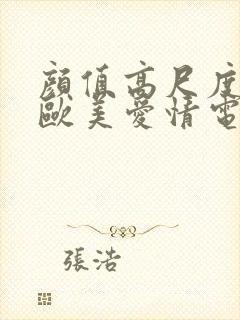 顔值高尺度
歐美愛情電
張浩